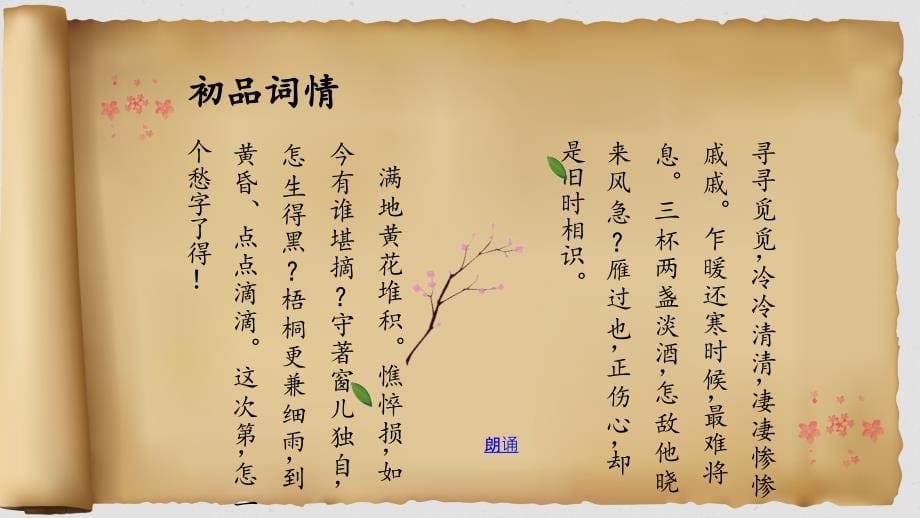 初品词情
寻寻觅觅,冷冷清清,凄凄惨惨
戚戚。乍暖还寒时候,最难将
息。三杯两盏淡酒,怎敌他晓
来风急?雁过也,正伤心,却
是旧时相识。
满地黄花堆积。憔悴损,如
今有谁堪摘?守著窗儿独自,
怎生得黑?梧桐更兼细雨,到
黄昏、点点滴滴。这次第,怎一
个愁字了得!
朗诵